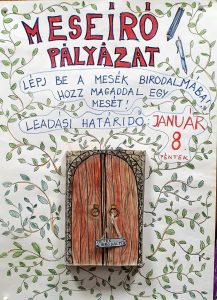 MESEÍRÓ
PÁLYÁZAT
LÉPJ BE A MESÉK BIRODALMÁBA!
HOZZ MAGADDAL EGY
MESÉT!
LEADÁSI HATÁRIDŐ: JANUÁR
8
PÉNTEK